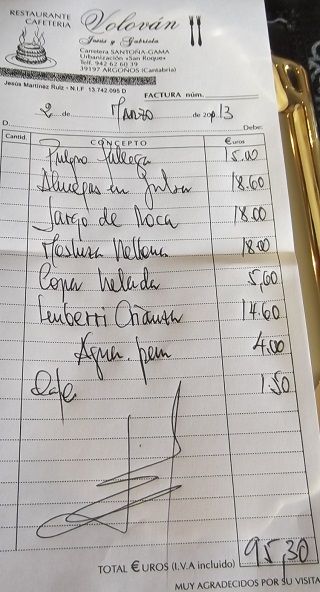 RESTAURANTE
CAFETERIA
Volován
Jesús y Gabriela
Carretera SANTOÑA-GAMA
Urbanización «San Roque»
Telf. 942 62 60 39
39197 ARGOÑOS (Cantabria)
Jesús Martínez Ruiz - N.I.F. 13.742.095 D
FACTURA núm.
2 de Marzo de 2013
D.
Debe:
Cantid. CONCEPTO €uros
Pulpo Gallega 15.00
Almejas en Salsa 18.60
Sargo de Roca 18.00
18.00
Copa helada 5,60
Crianza 14.60
Agua. pan 4.00
Cafe 1.50
TOTAL €UROS (I.V.A incluido) 95,30
MUY AGRADECIDOS POR SU VISITA